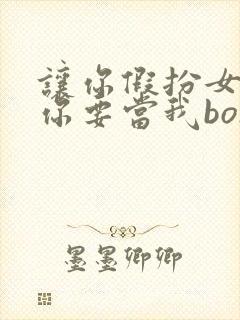 讓你假扮女
你要當我bo
墨墨卿卿